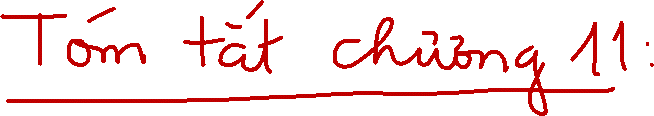 Tóm tắt chương 11: